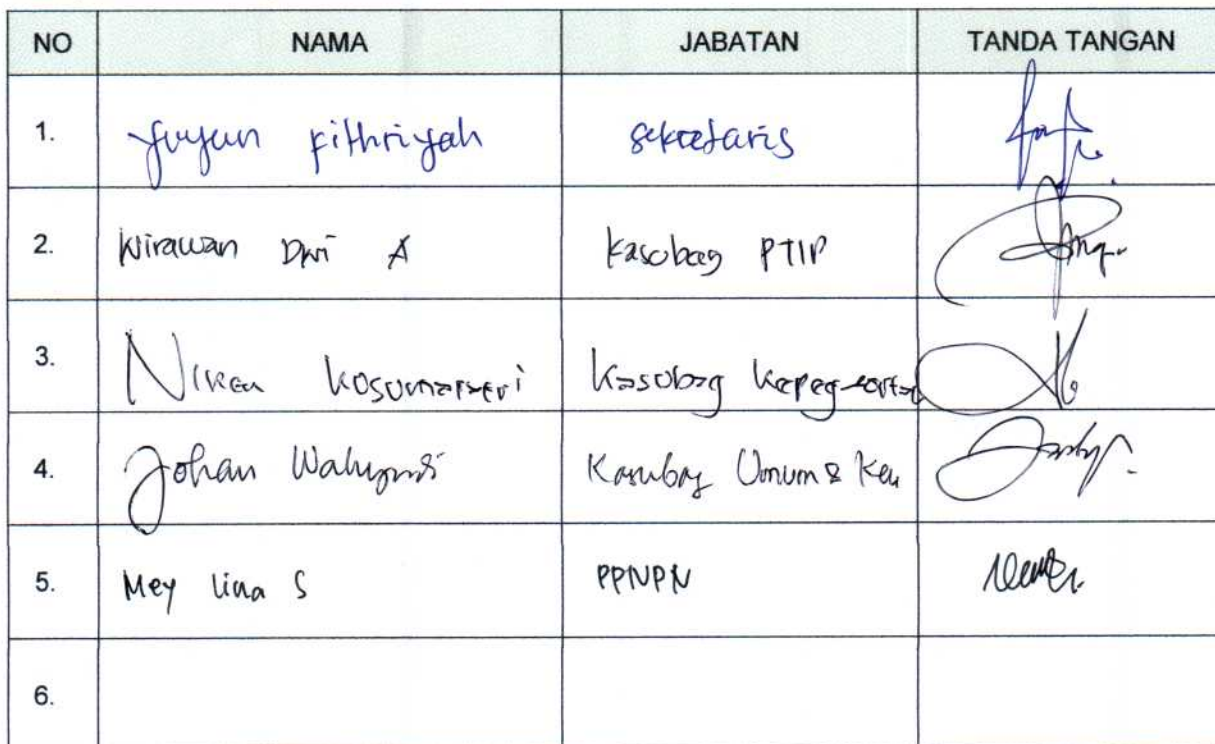 NO NAMA JABATAN TANDA TANGAN
1. Yuyun Fithriyah Sekretaris
2. Wirawan Dwi A Kasubag PTIP
3. Niken Kusumawardani Kasubag
4. Johan Wahyudi Kasubag Umum & Keu
5. Mey Lina S PPNPN
6.